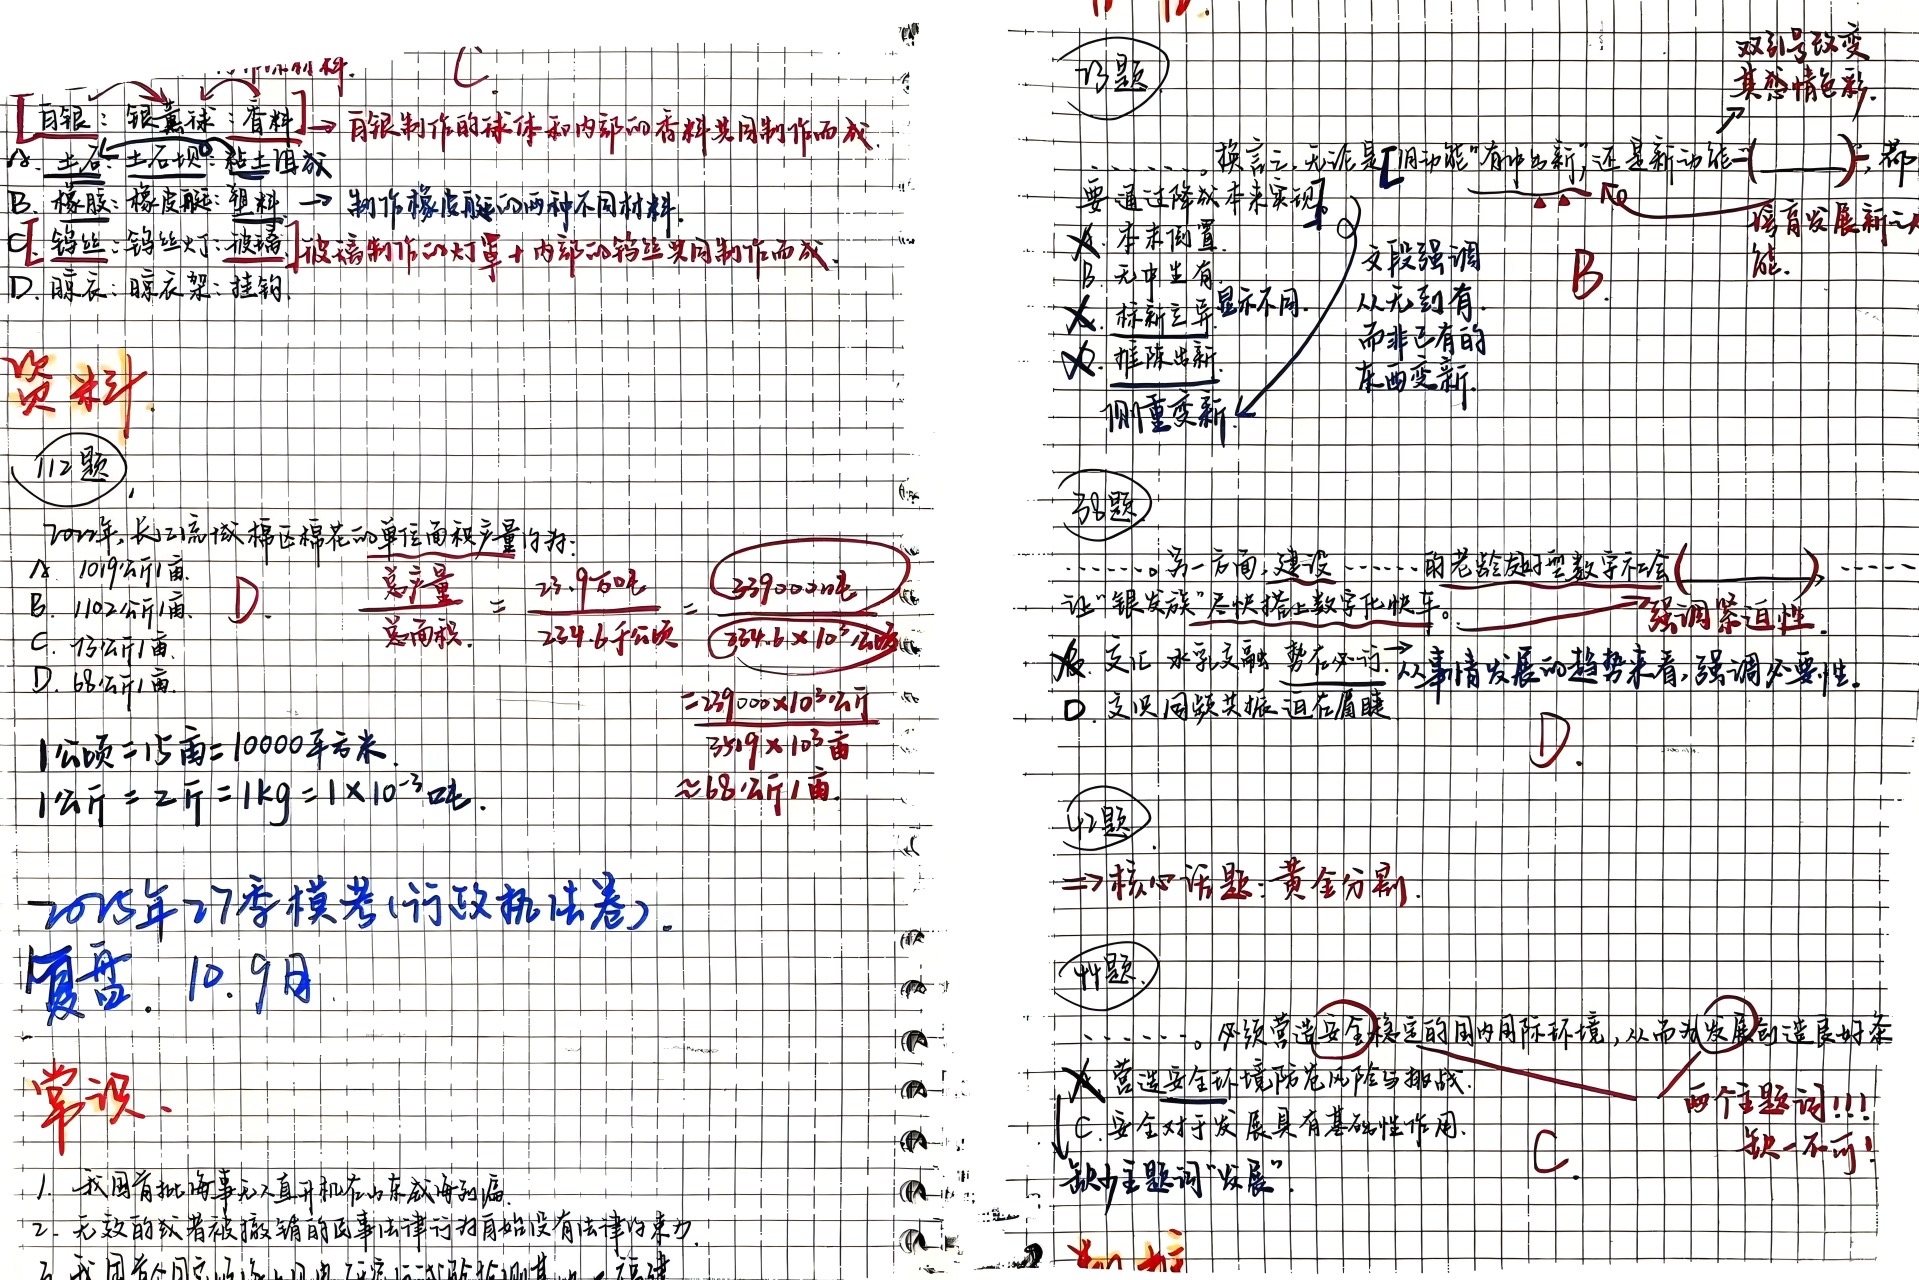 材料.
C.
[白银：银熏球：香料] → 白银制作的球体和内部的香料共同制作而成
A. 土石：土石坝：黏土
B. 橡胶：橡皮艇：塑料 → 制作橡皮艇的两种不同材料.
C[钨丝：钨丝灯：玻璃] 玻璃制作的灯罩+内部的钨丝共同制作而成.
D. 晾衣：晾衣架：挂钩.
资料.
112题
2022年，长江流域棉区棉花的单位面积产量约为：
A 1019公斤/亩.
B. 1102公斤/亩.
C. 73公斤/亩.
D. 68公斤/亩.
D.
总产量/总面积 = 23.9万吨/234.6千公顷 = 239000吨/234.6×10³公顷
=239000×10³公斤/3519×10³亩
≈68公斤/亩.
1公顷=15亩=10000平方米.
1公斤=2斤=1kg=1×10⁻³吨.
2025年27季模考(行政执法卷).
复盘. 10.9月
常识.
1. 我国首批海事无人直升机在山东威海列编.
2. 无效的或者被撤销的民事法律行为自始没有法律约束力.
3. 我国首个国家
福建
23题
双引号改变
其感情色彩.
……。换言之，无论是[旧动能“有中出新”，还是新动能“(　　)”，都
要通过降成本来实现].
培育发展新动
能.
A. 本末倒置
B 无中生有
C. 标新立异 显示不同.
D. 推陈出新.
侧重变新.
文段强调
从无到有.
而非已有的
东西变新.
B.
38题
……。另一方面，建设……的老龄友好型数字社会(　　)，……
让“银发族”尽快搭上数字化快车。
强调紧迫性.
B. 交汇 水乳交融 势在必行 → 从事情发展的趋势来看，强调必要性.
D. 交织 同频共振 迫在眉睫
D.
42题
=>核心话题：黄金分割.
44题
……。必须营造安全稳定的国内国际环境，从而为发展创造良好条
A 营造安全环境防范风险与挑战.
C. 安全对于发展具有基础性作用.
缺少主题词“发展”.
两个主题词!!!
缺一不可!
C.